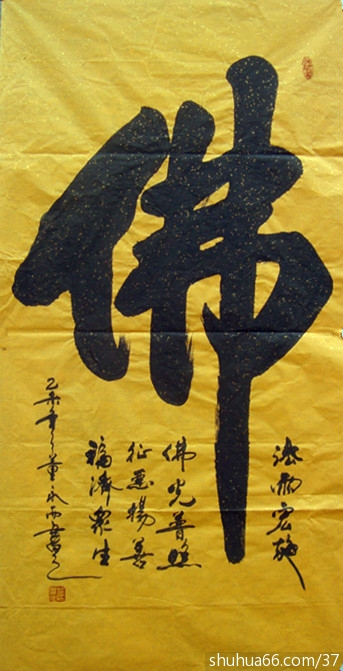 佛
法雨宏施
佛光普照
征恶扬善
福济众生
乙未年
shuhua66.com/37